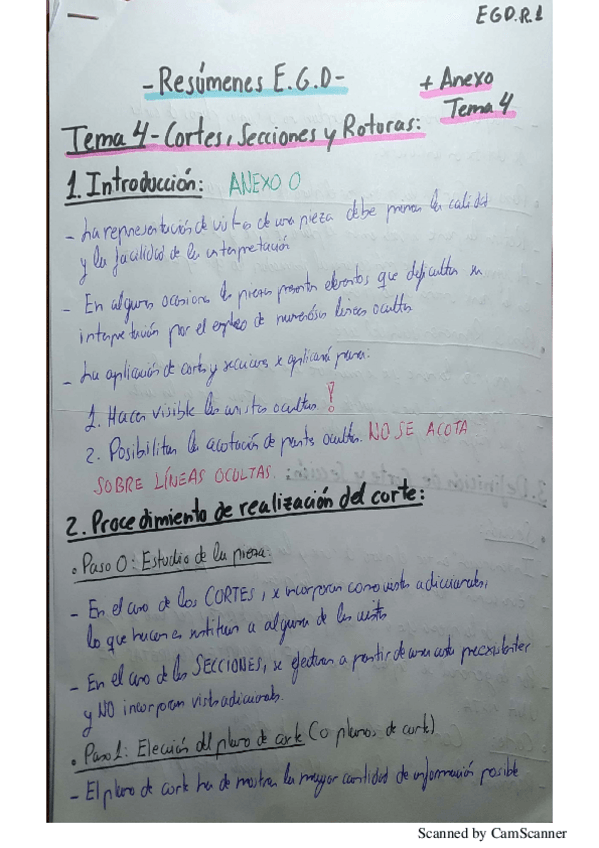 EGD.R.1
- Resúmenes E.G.D -
+ Anexo
Tema 4
Tema 4 - Cortes, Secciones y Roturas:
1. Introducción: ANEXO 0
- La representación de vistas de una pieza debe primar la calidad
y la facilidad de la interpretación
- En algunas ocasiones las piezas presentan elementos que dificultan su
interpretación por el empleo de numerosas líneas ocultas
- La aplicación de cortes y secciones se aplicará para:
1. Hacer visible las aristas ocultas !
2. Posibilitar la acotación de parts ocultas. NO SE ACOTA
SOBRE LÍNEAS OCULTAS.
2. Procedimiento de realización del corte:
• Paso 0: Estudio de la pieza:
- En el caso de los CORTES, se incorporan como vistas adicionales,
lo que hacen es sustituir a alguna de las vistas
- En el caso de las SECCIONES, se efectuan a partir de una vista preexistente
y NO incorporan vistas adicionales.
• Paso 1: Elección del plano de corte (o planos de corte)
- El plano de corte ha de mostrar la mayor cantidad de información posible
Scanned by CamScanner